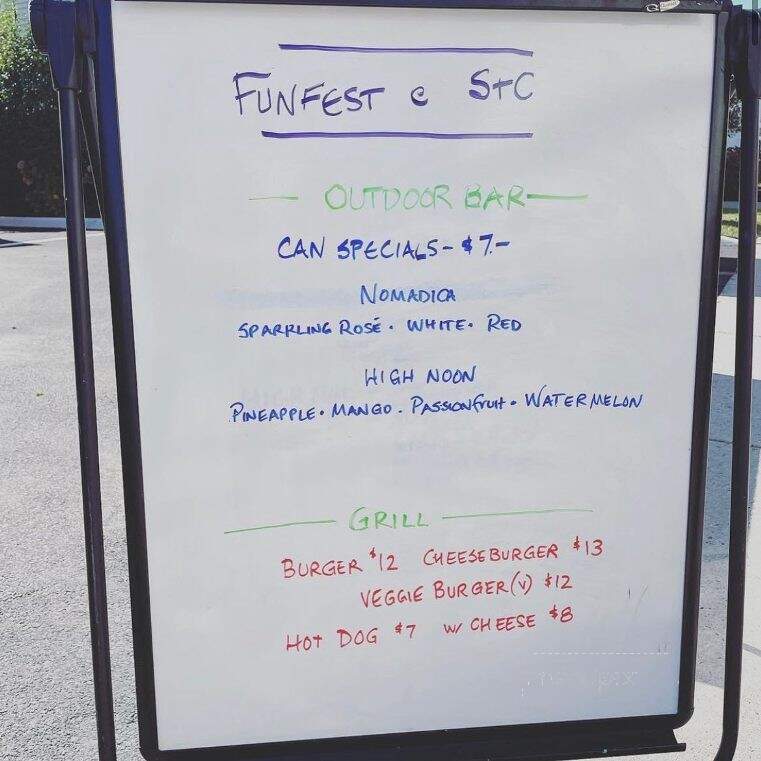 FUNFEST @ STC
OUTDOOR BAR
CAN SPECIALS - $7.-
NOMADICA
SPARKLING ROSÉ • WHITE • RED
HIGH NOON
PINEAPPLE • MANGO • PASSIONFRUIT • WATERMELON
GRILL
BURGER $12 CHEESEBURGER $13
VEGGIE BURGER (V) $12
HOT DOG $7 W/ CHEESE $8